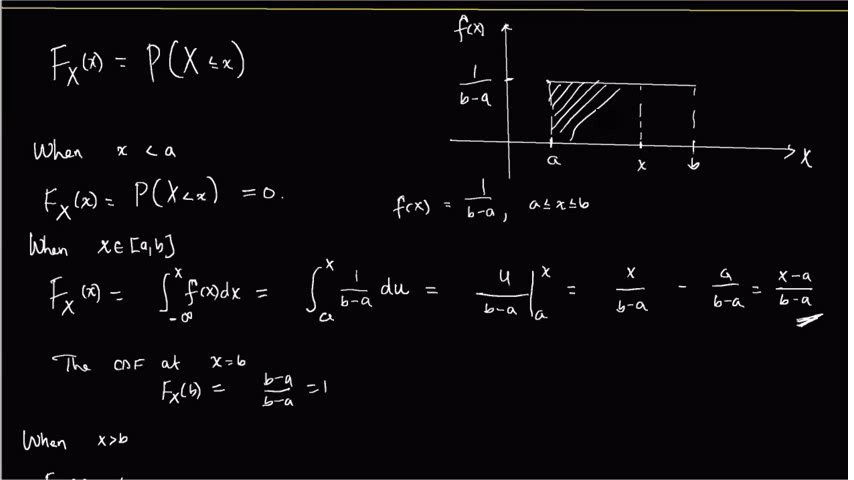 F_X(x) = P(X ≤ x)
f(x)
1/(b-a)
a x b X
When x < a
F_X(x) = P(X<x) = 0.
f(x) = 1/(b-a), a ≤ x ≤ b
When x∈[a,b]
F_X(x) = ∫_{-∞}^{x} f(x)dx = ∫_{a}^{x} 1/(b-a) du = u/(b-a) |_{a}^{x} = x/(b-a) - a/(b-a) = (x-a)/(b-a)
The CDF at x=b
F_X(b) = (b-a)/(b-a) = 1
When x>b